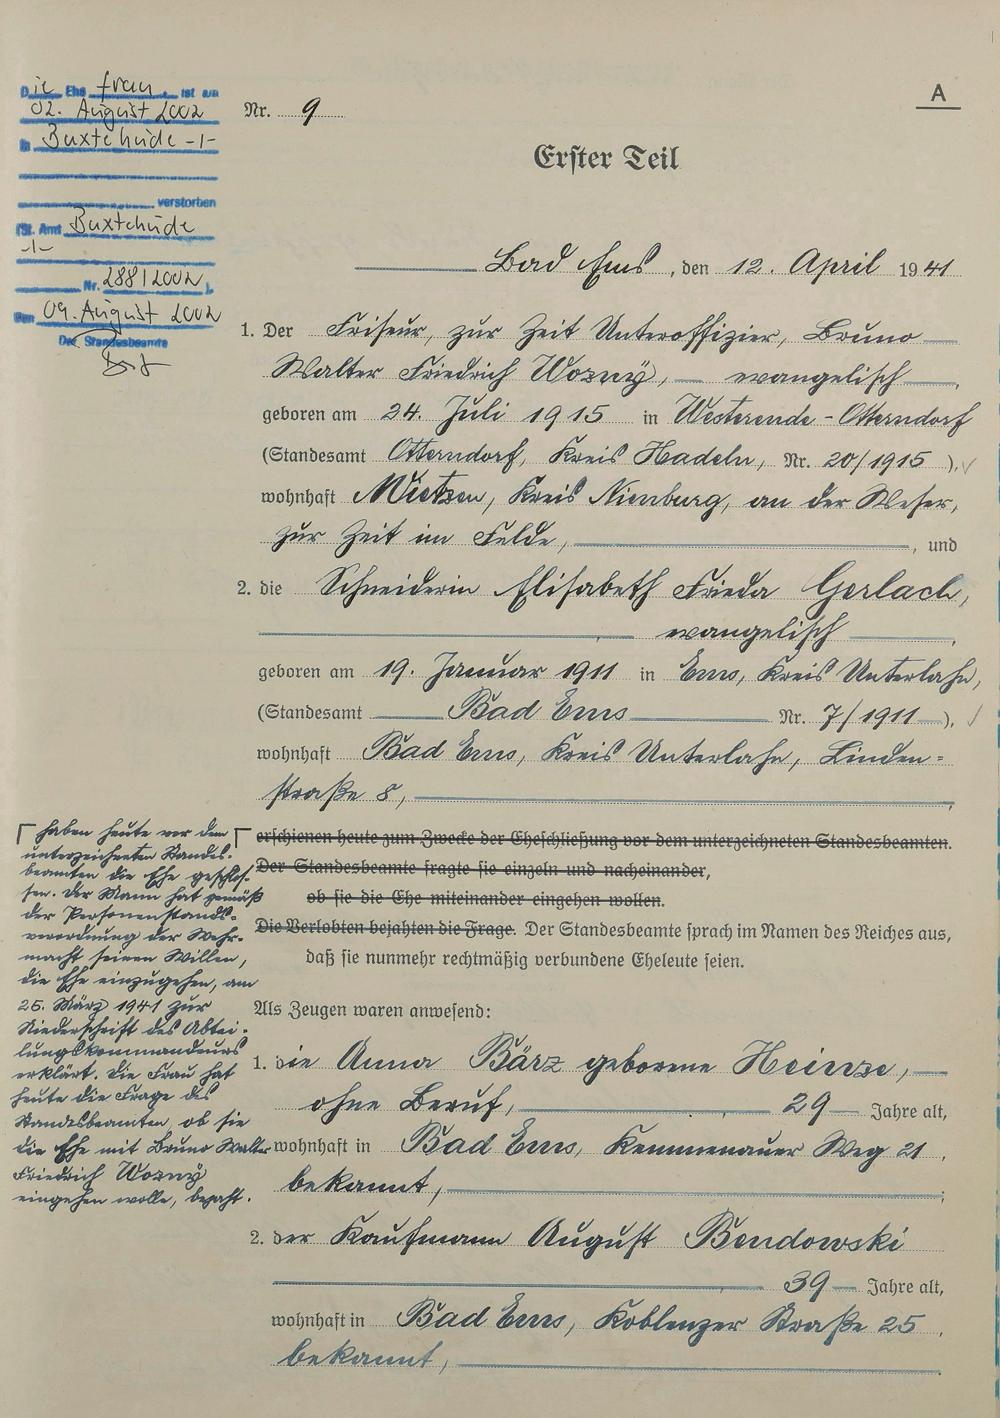 Die Ehefrau ist am
02. August 2002
in Buxtehude -/-
verstorben
(St. Amt Buxtehude
-/-
Nr. 288/2002),
Den 09. August 2002
Der Standesbeamte
A
Nr. 9
Erster Teil
Bad Ems, den 12. April 1941
1. Der Friseur, zur Zeit Unteroffizier, Bruno
Walter Friedrich Wozny, evangelisch,
geboren am 24. Juli 1915 in Westerende-Otterndorf
(Standesamt Otterndorf, Kreis Hadeln, Nr. 20/1915),
wohnhaft Wietzen, Kreis Nienburg, an der Weser,
zur Zeit im Felde, , und
2. die Schneiderin Elisabeth Frieda Gerlach,
evangelisch,
geboren am 19. Januar 1911 in Ems, Kreis Unterlahn,
(Standesamt Bad Ems Nr. 7/1911),
wohnhaft Bad Ems, Kreis Unterlahn, Linden=
straße 8,
erschienen heute zum Zwecke der Eheschließung vor dem unterzeichneten Standesbeamten.
Der Standesbeamte fragte sie einzeln und nacheinander,
ob sie die Ehe miteinander eingehen wollen.
Die Verlobten bejahten die Frage. Der Standesbeamte sprach im Namen des Reiches aus,
daß sie nunmehr rechtmäßig verbundene Eheleute seien.
haben heute vor dem
unterzeichneten Standes-
beamten die Ehe geschlos-
sen. Der Mann hat gemäß
der Personenstands-
verordnung der Wehr-
macht seinen Willen,
die Ehe einzugehen, am
25. März 1941 zur
Niederschrift des Abtei-
lungskommandeurs
erklärt. Die Frau hat
heute die Frage des
Standesbeamten, ob sie
die Ehe mit Bruno Walter
Friedrich Wozny
eingehen wolle, bejaht.
Als Zeugen waren anwesend:
1. die Anna Bärz geborene Heinze,
ohne Beruf, 29 Jahre alt,
wohnhaft in Bad Ems, Kemmenauer Weg 21,
bekannt,
2. der Kaufmann August Bendowski
39 Jahre alt,
wohnhaft in Bad Ems, Koblenzer Straße 25,
bekannt,